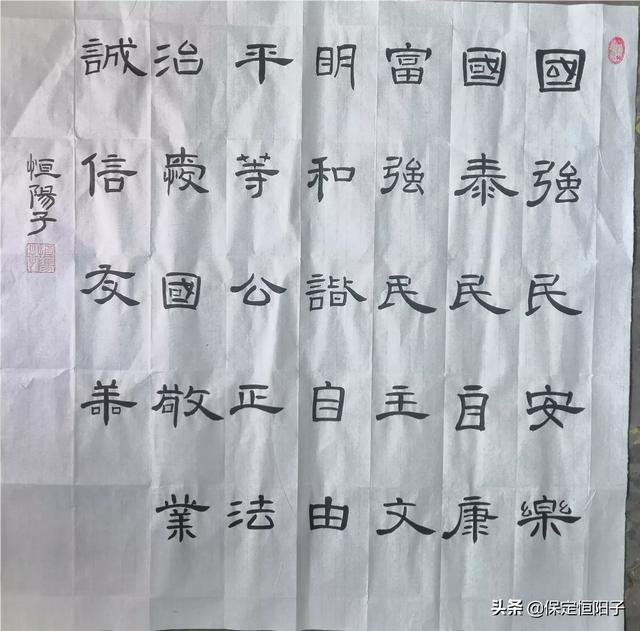 國強民安樂
國泰民自康
富強民主文
明和諧自由
平等公正法
治愛國敬業
誠信友善
恒陽子
头条 @保定恒阳子